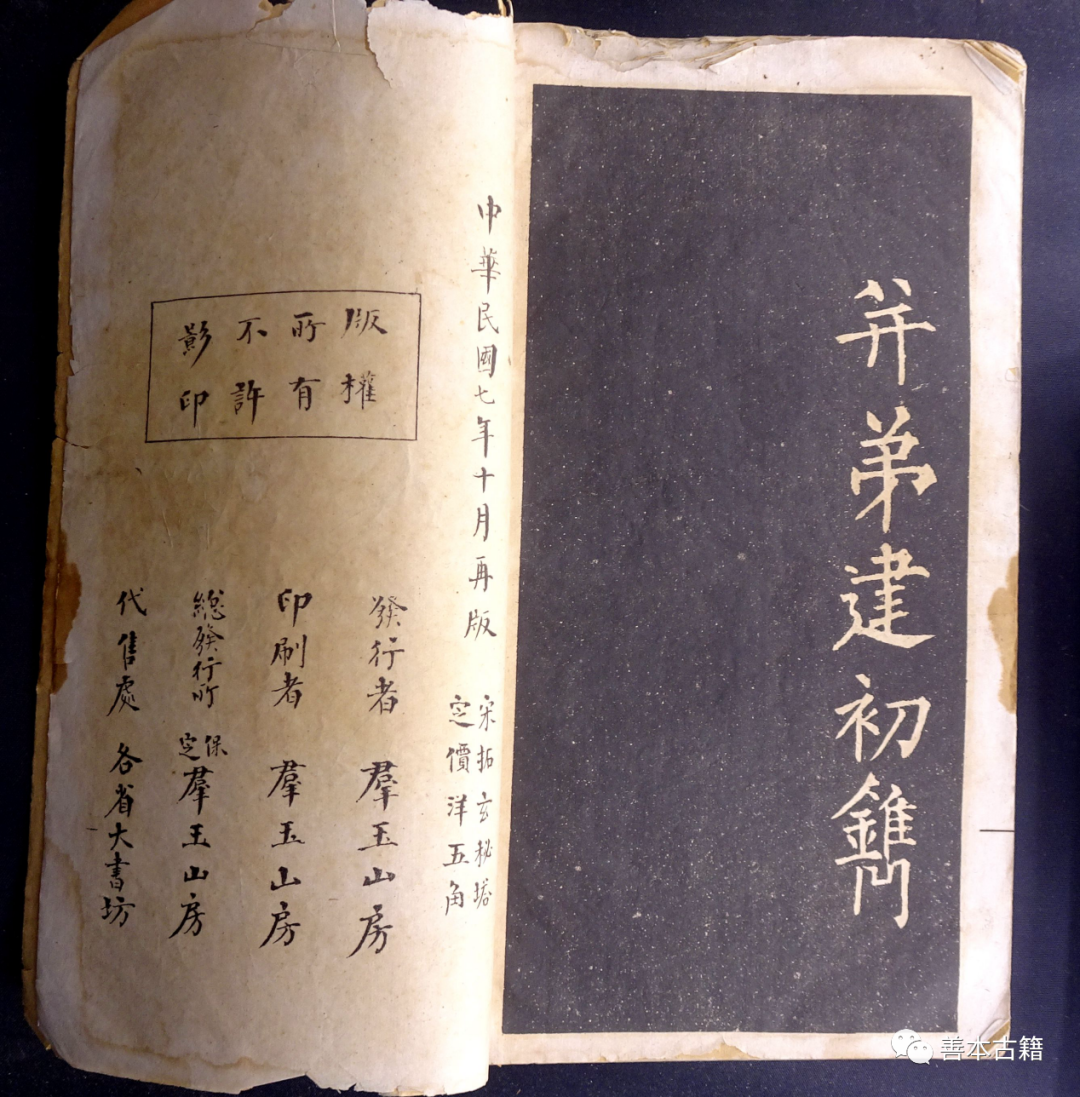 并弟建初鐫
中華民國七年十月再版
宋拓玄秘塔
定價洋五角
版權
所有
不許
影印
發行者 羣玉山房
印刷者 羣玉山房
總發行所 保定羣玉山房
代售處 各省大書坊
善本古籍